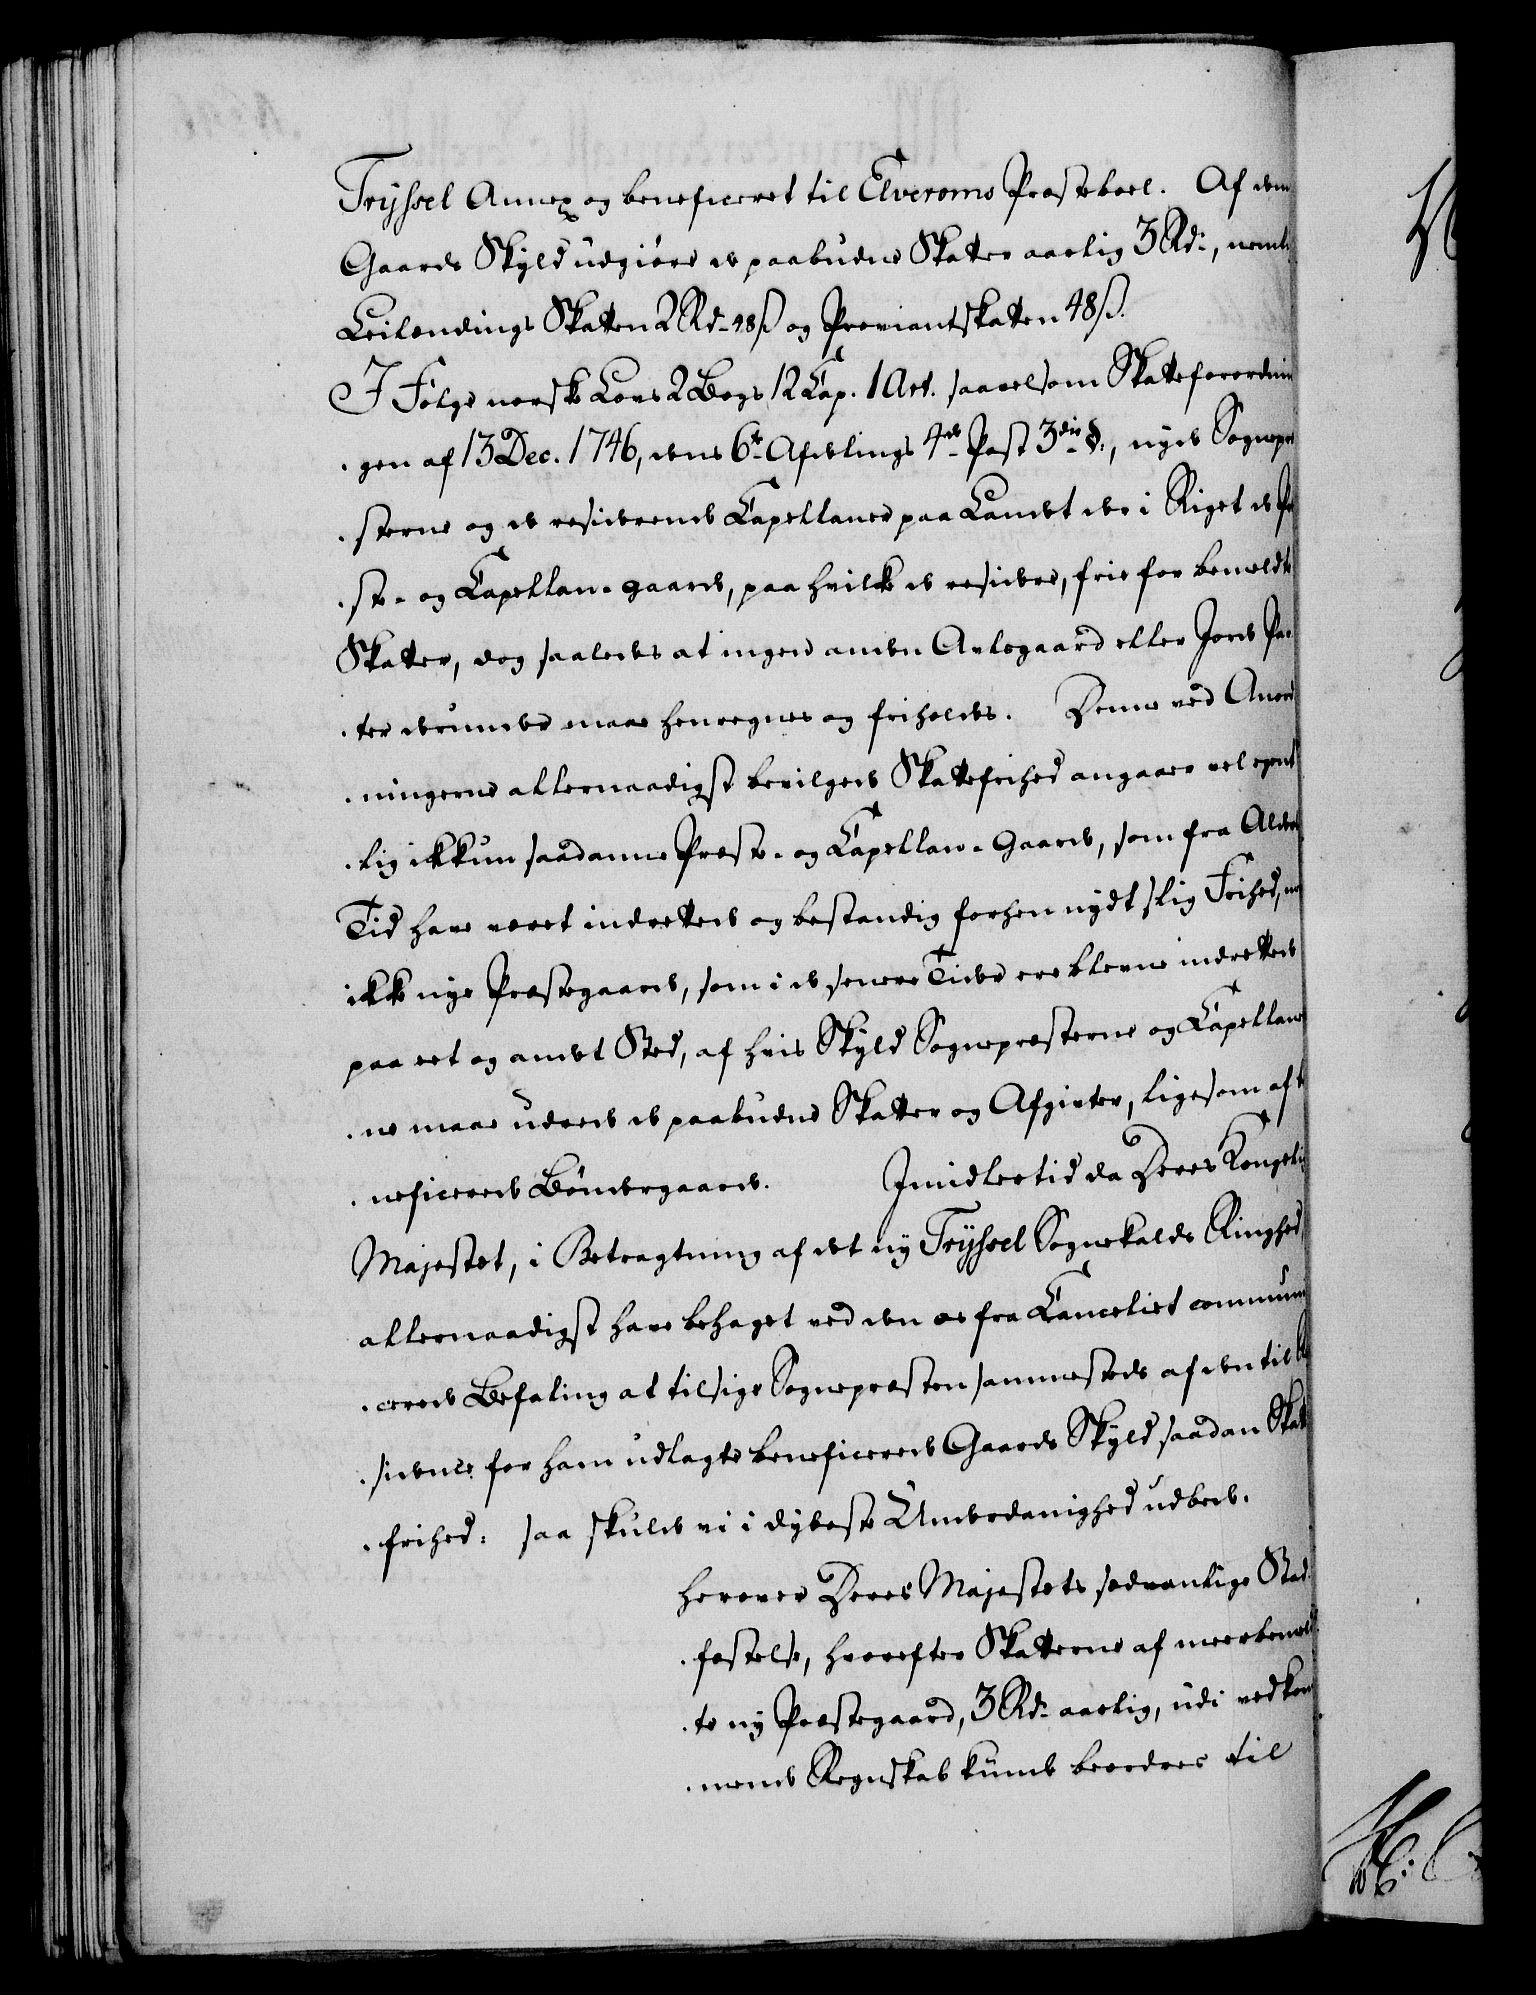 Tryssel Annex og beneficeret til Elveroms Præsteboel. Af denne
Gaards Skyld udgiøre de paabudne Skatter aarlig 3 Rd:, nemlig
Leilændings Skatten 2 Rd. 48 ß og Proviantskatten 48 ß.
I Følge norske Lovs 2 Bogs 12 Cap. 1 Art. saavelsom Skatteforordnin
-gen af 13 Dec. 1746, dens 6te Afdelings 4de Post 3die §., nyde Sognepræ
-sterne og de residerende Capellaner paa Landet der i Riget de Præ
-ste- og Capellan-gaarde, paa hvilke de residere, frie for bemeldte
Skatter, dog saaledes at ingen anden Avlsgaard eller Jorde Par
-ter derunder maae henregnes og friholdes. Denne ved Anord
-ningerne allernaadigst bevilgede Skattefrihed angaaer vel egent
-lig ikkun saadanne Præste- og Capellan-Gaarde, som fra Alders
Tid have været indrettede og bestandig forhen nydt slig Frihed, men
ikke nye Præstegaarde, som i de senere Tider ere blevne indrettede
paa eet og andet Sted, af hvis Skyld Sognepræsterne og Capellaner
-ne maae udrede de paabudne Skatter og Afgivter, ligesom af be
-neficerede Bøndergaarde. Imidlertid da Deres Kongelig
Majestet, i Betragtning af det ny Tryssel Sognekalds Ringhed,
allernaadigst have behaget ved den os fra Cancelliet communi
-cerede Befaling at tilsige Sognepræsten sammesteds af den til Re
-sidence for ham udlagte beneficerede Gaards Skyld saadan Skatte
-frihed: saa skulde vi i dybeste Underdanighed udbede-
herover Deres Majestets sædvanlige Stad-
-fæstelse, hvorefter Skatterne af meerbemeld-
-te ny Præstegaard, 3 Rd: aarlig, udi vedkom
-mende Regnskab kunde beordres til